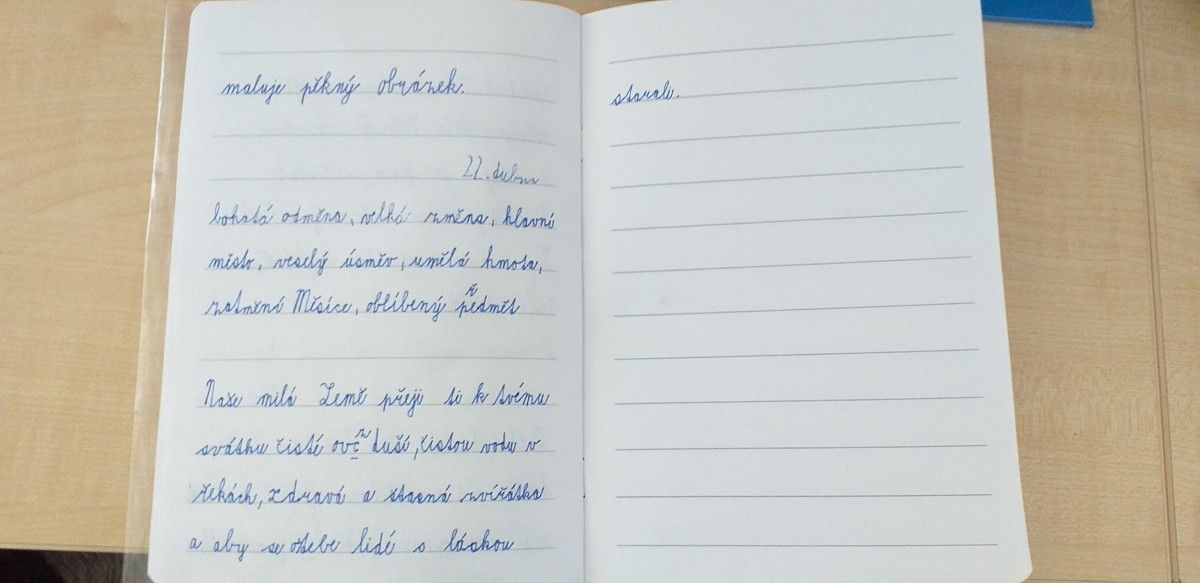 maluje pěkný obrázek.
22. dubna
bohatá odměna, velká změna, hlavní
město, veselý úsměv, umělá hmota,
zatmění Měsíce, oblíbený předmět
Naše milá Země přeji ti k tvému
svátku čisté ovzduší, čistou vodu v
řekách, zdravá a šťasná zvířátka
a aby se otebe lidé s láskou
starali.